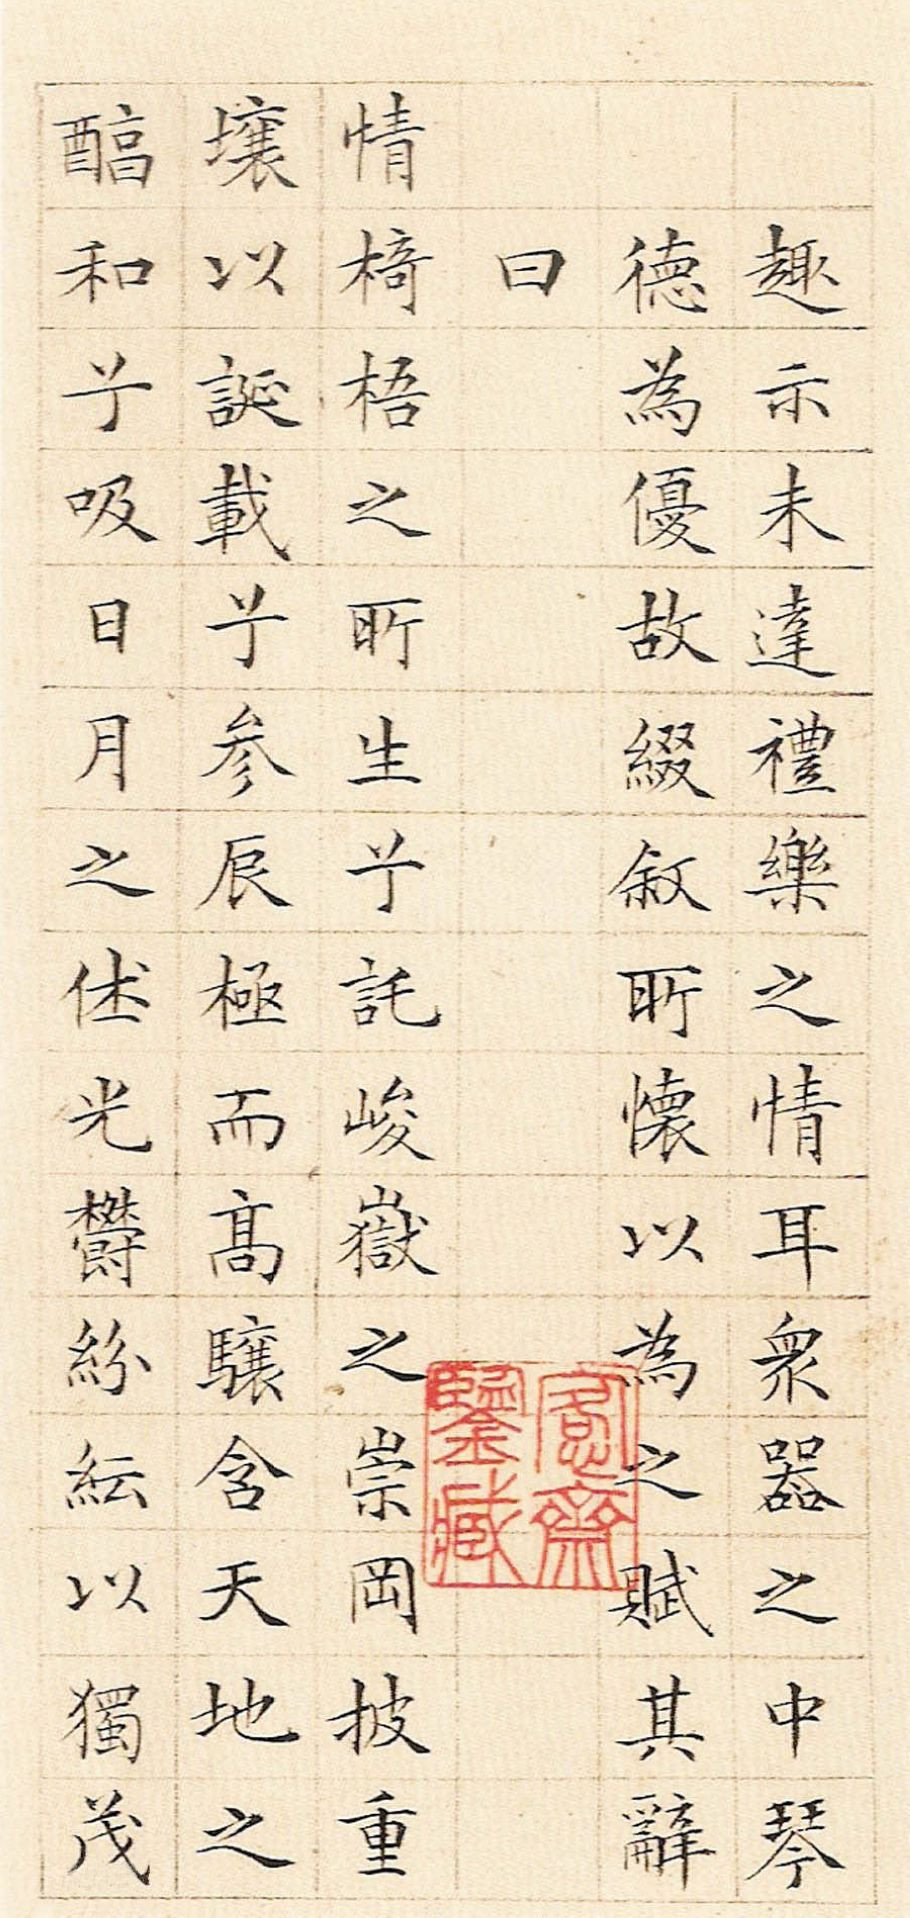 趣示未達禮樂之情耳衆器之中琴
德為優故綴敘所懷以為之賦其辭
曰
情椅梧之所生兮託峻嶽之崇岡披重
壤以誕載兮參辰極而高驤含天地之
醕和兮吸日月之休光鬱紛紜以獨茂
愙齋
鑒藏